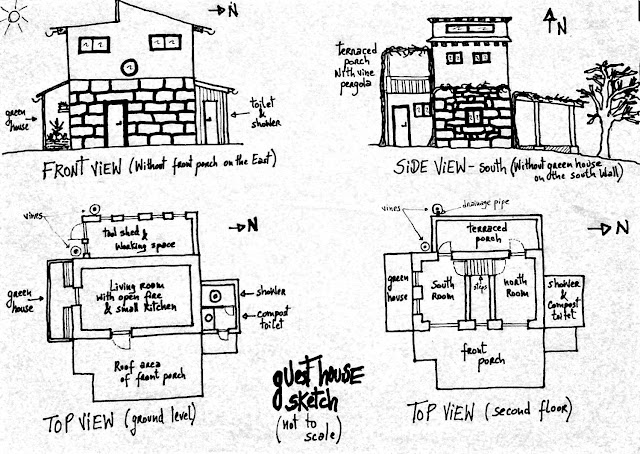 N
green
house
toilet
&
shower
FRONT VIEW (Without front porch on the East)
N
terraced
porch
With vine
pergola
SiDE ViEW - South (Without green house
on the south wall)
vines
N
tool shed &
working space
green
house
Living room
with open fire
& small kitchen
shower
compost
toilet
Roof area
of front porch
TOP ViEW (ground level)
guest house
sketch
(Not to
scale)
vines
drainage pipe
N
terraced
porch
green
house
South
Room
steps
north
Room
shower
&
compost
toilet
front
porch
TOP ViEW (second floor)